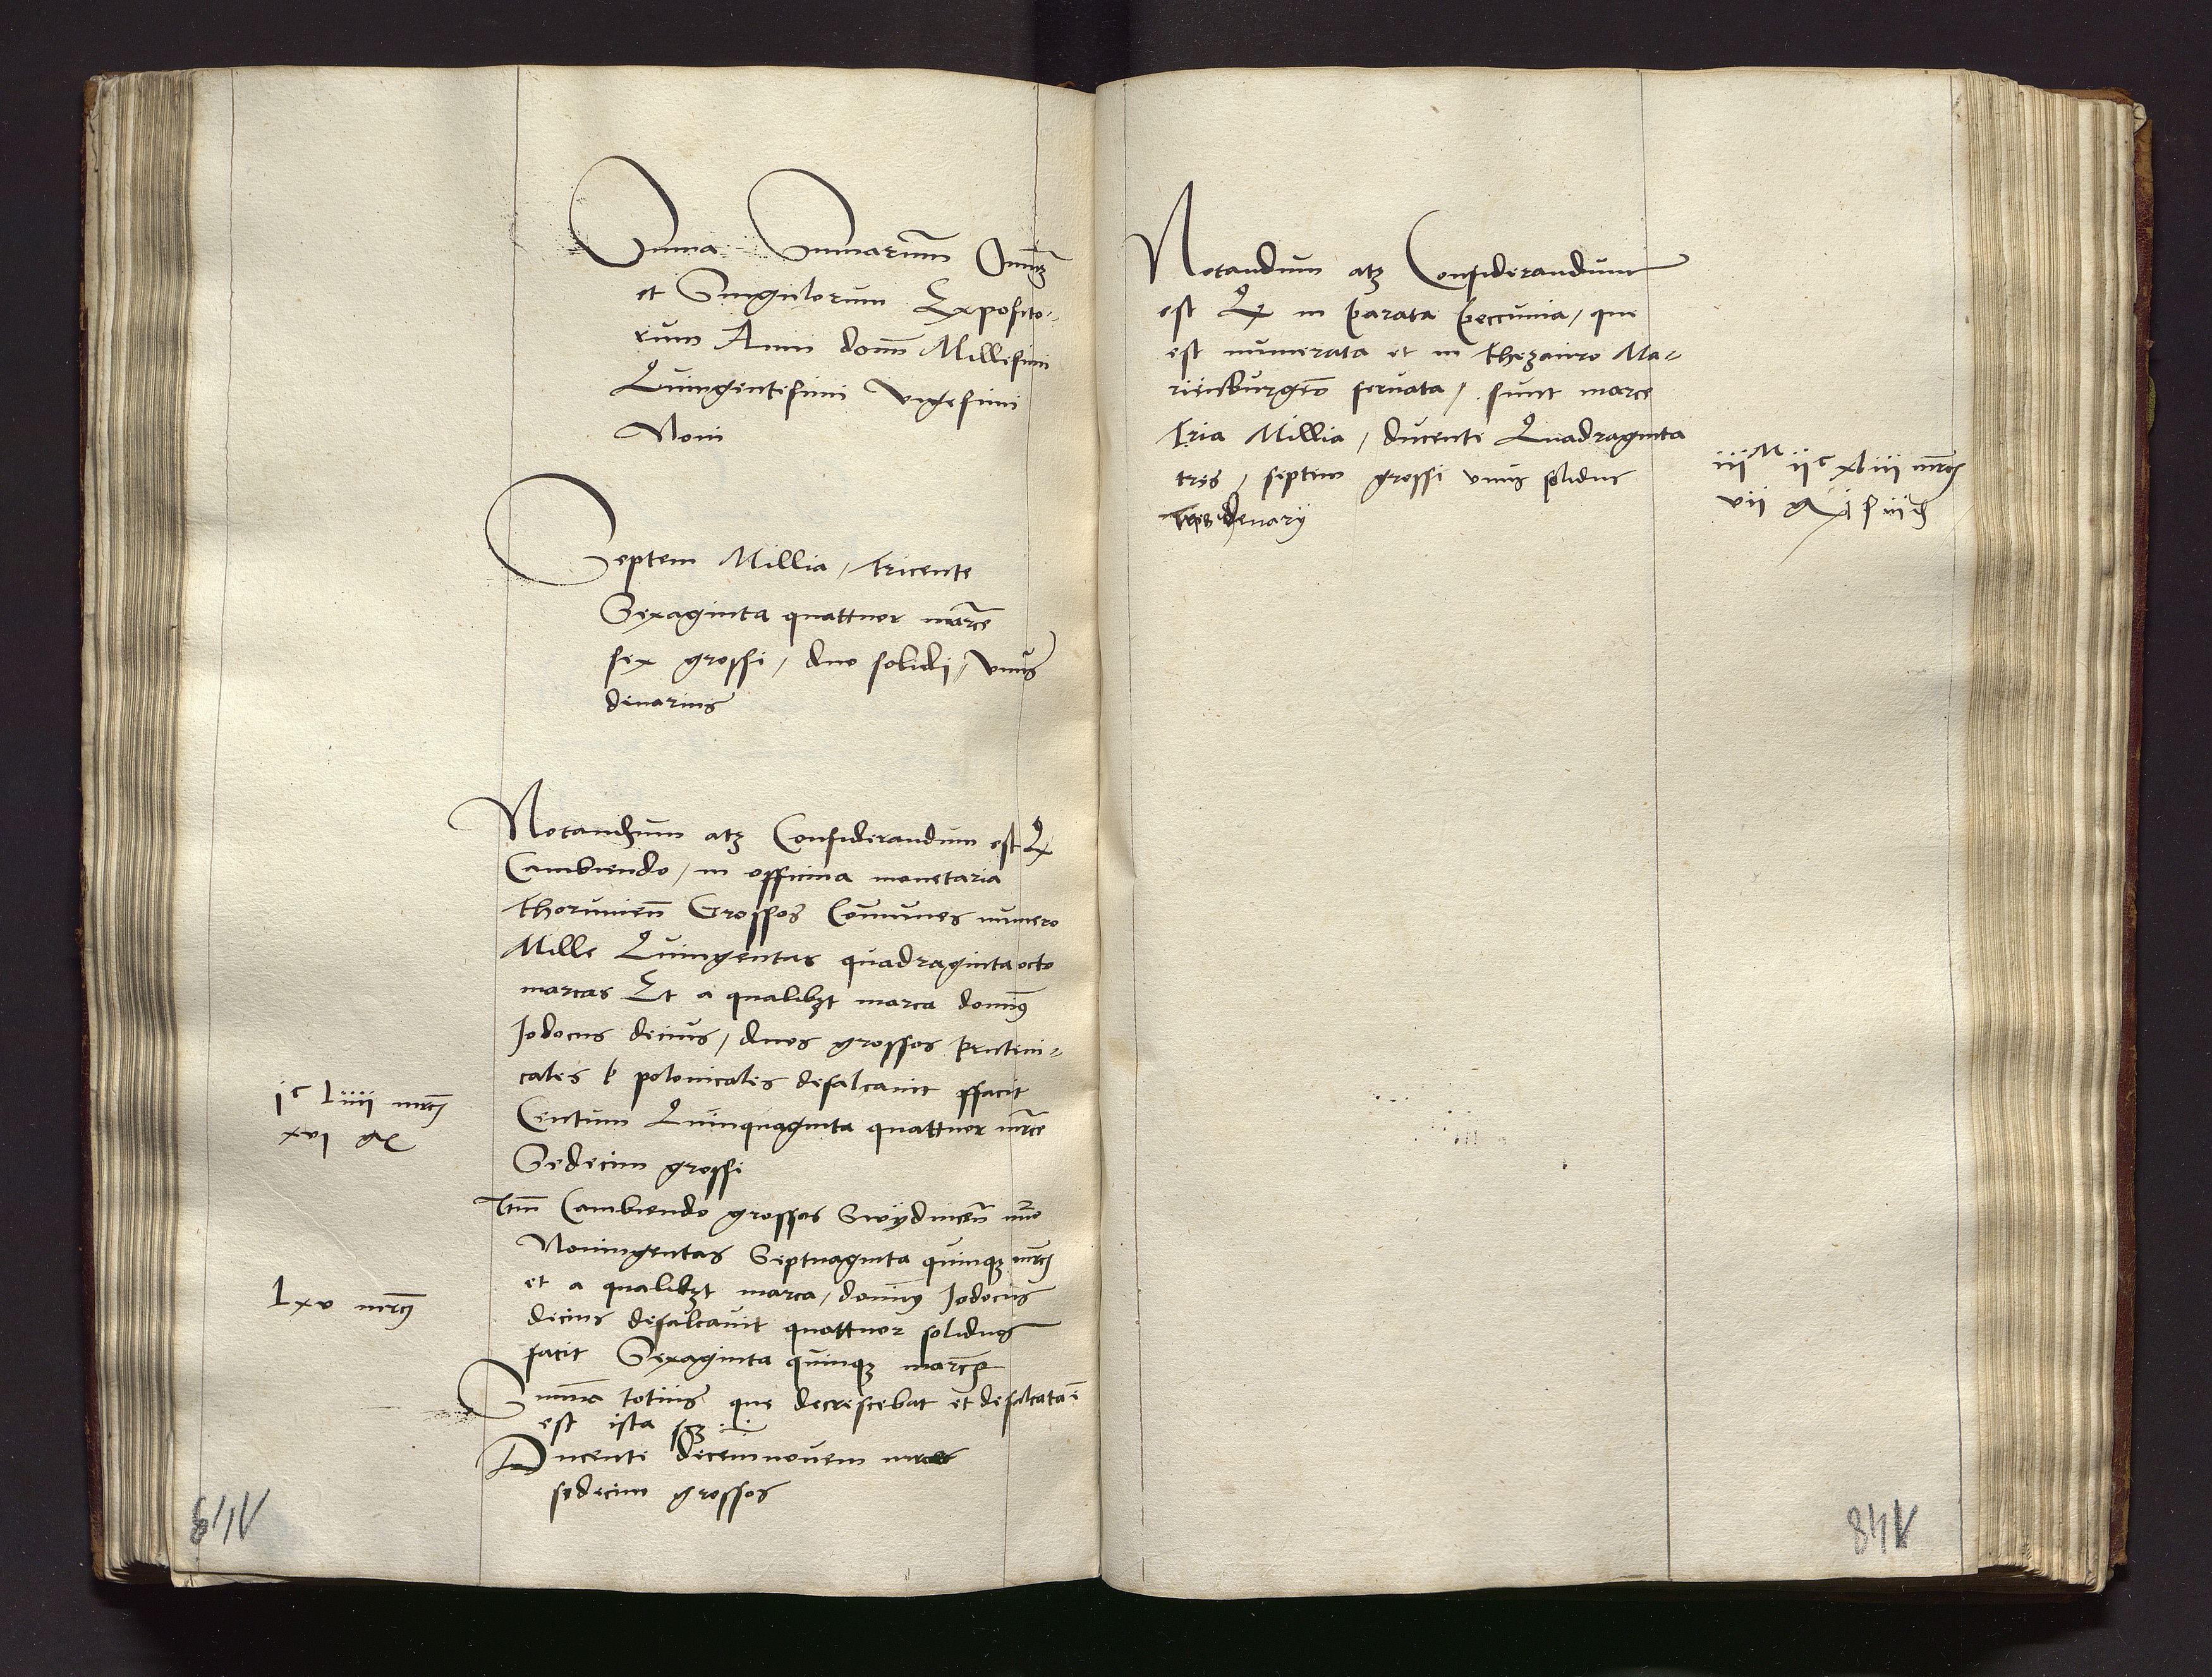 Suma Sumarum Omniu
et Singulorum Exposito-
rum Anni domni Millesimi
Quingentesimi vigesimi
Noni
Septem Millia / tricente
Sexaginta quattuor marce
sex grossi / duo solidi / vnus
denarius
Notandum atqz Considerandum est Qz
Cambiendo / in officina monetaria
thorunien Grossos Comunes numero
Mille Quingentas quadraginta octo
marcas Et a qualibzt marca dominus
Jodocus decius / duos grossos pruteni-
cales polonicales defalcauit ffacit
Centum Quinquaginta quattuor mrce
Sedecim grossi
jc Liiii mrcs
xvi gr
Itm Cambiendo grossos Swydnicen nuo
Noningentas Septuaginta quinqz mrcs
et a qualibzt marca / dominus Jodocus
decius defalcauit quattuor solidos
facit Sexaginta quinqz marce
Lxv mrcs
Suma totius que decrescebat et defalcata e
est ista scz
Ducente decemnouem mrce
sedecim grossos
148
Notandum atqz Considerandum
est Qz in parata peccunia / que
est numerata et in thezauro Ma-
rienburgen seruata / sunt marce
tria Millia / ducente Quadraginta
tres / septem grossi vnus solidus
tres denarij
iiiM iic xliii mrcs
vii gr j s iii d
148